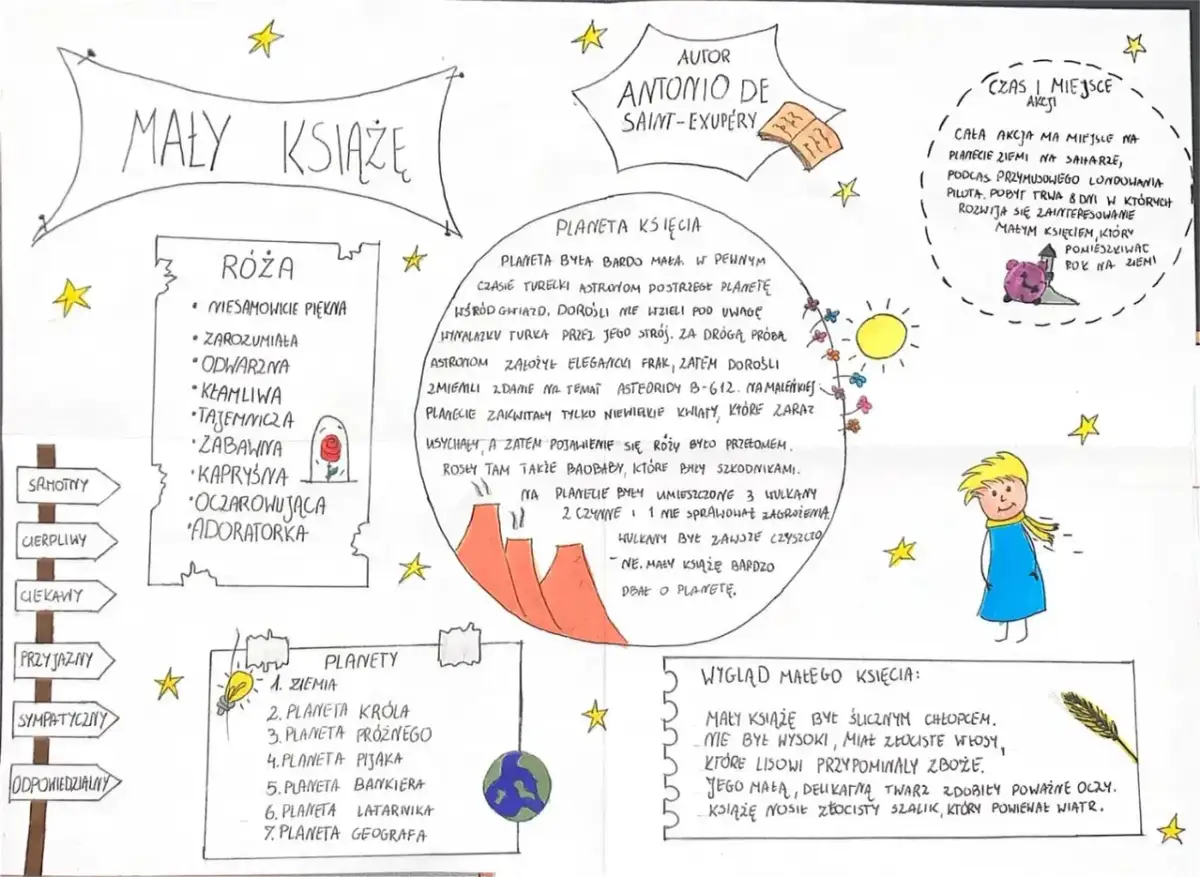 MAŁY KSIĄŻĘ
AUTOR
ANTONIO DE
SAINT-EXUPÉRY
CZAS I MIEJSCE
AKCJI
CAŁA AKCJA MA MIEJSCE NA
PLANECIE ZIEMI NA SAHARZE,
PODCAS PRZYMUSOWEGO LONDOWANIA
PILOTA. POBYT TRWA 8 DNI W KTÓRYCH
ROZWIJA SIĘ ZAINTERESOWANIE
MAŁYM KSIĘCIEM, KTÓRY
POMIESZKIWAĆ
ROK NA ZIEMI
RÓŻA
• NIESAMOWICIE PIĘKNA
• ZAROZUMIAŁA
• ODWARZNA
• KŁAMLIWA
• TAJEMNICZA
• ZABAWNA
• KAPRYŚNA
• OCZAROWUJĄCA
• ADORATORKA
PLANETA KSIĘCIA
PLANETA BYŁA BARDO MAŁA. W PEWNYM
CZASIE TURECKI ASTRONOM DOSTRZEGŁ PLANETĘ
WŚRÓD GWIAZD. DOROŚLI NIE WZIELI POD UWAGĘ
WYNALAZKU TURKA PRZEZ JEGO STRÓJ. ZA DRÓGĄ PRÓBĄ
ASTRONOM ZAŁOŻYŁ ELEGANCKI FRAK, ZATEM DOROŚLI
ZMIENILI ZDANIE NA TEMAT ASTEORIDY B-612. NA MALEŃKIEJ
PLANECIE ZAKWITAŁY TYLKO NIEWIELKIE KWIATY, KTÓRE ZARAZ
USYCHAŁY, A ZATEM POJAWIENIE SIĘ RÓŻY BYŁO PRZEŁOMEM.
ROSŁY TAM TAKŻE BAOBABY, KTÓRE BYŁY SZKODNIKAMI.
NA PLANECIE BYŁY UMIESZCZONE 3 WULKANY
2 CZYNNE I 1 NIE SPRAWOWAŁ ZAGROŻENIA
WULKANY BYŁ ZAWSZE CZYSZCZO
- NE. MAŁY KSIĄŻĘ BARDZO
DBAŁ O PLANETĘ.
SAMOTNY
CIERPLIWY
CIEKAWY
PRZYJAZNY
SYMPATYCZNY
ODPOWIEDZIALNY
PLANETY
1. ZIEMIA
2. PLANETA KRÓLA
3. PLANETA PRÓŻNEGO
4. PLANETA PIJAKA
5. PLANETA BANKIERA
6. PLANETA LATARNIKA
7. PLANETA GEOGRAFA
WYGLĄD MAŁEGO KSIĘCIA:
MAŁY KSIĄŻĘ BYŁ ŚLICZNYM CHŁOPCEM.
NIE BYŁ WYSOKI, MIAŁ ZŁOCISTE WŁOSY,
KTÓRE LISOWI PRZYPOMINAŁY ZBOŻE.
JEGO MAŁĄ, DELIKATNĄ TWARZ ZDOBIŁY POWAŻNE OCZY.
KSIĄŻĘ NOSIŁ ZŁOCISTY SZALIK, KTÓRY POWIEWAŁ WIATR.